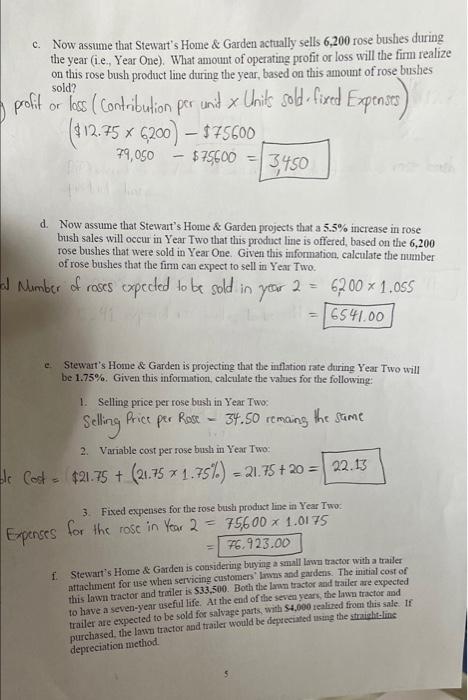 c. Now assume that Stewart's Home & Garden actually sells 6,200 rose bushes during
the year (i.e., Year One). What amount of operating profit or loss will the firm realize
on this rose bush product line during the year, based on this amount of rose bushes
sold?
profit or loss (Contribution per unit x Units sold - fixed Expenses)
($12.75 x 6,200) - $75600
79,050 - $75,600 = 3,450
d. Now assume that Stewart's Home & Garden projects that a 5.5% increase in rose
bush sales will occur in Year Two that this product line is offered, based on the 6,200
rose bushes that were sold in Year One. Given this information, calculate the number
of rose bushes that the firm can expect to sell in Year Two.
Number of roses expected to be sold in year 2 = 6,200 x 1.055
= 6541.00
e. Stewart's Home & Garden is projecting that the inflation rate during Year Two will
be 1.75%. Given this information, calculate the values for the following:
1. Selling price per rose bush in Year Two:
Selling Price per Rose - 34.50 remaing the same
2. Variable cost per rose bush in Year Two:
Cost = $21.75 + (21.75 x 1.75%) = 21.75 + 20 = 22.13
3. Fixed expenses for the rose bush product line in Year Two:
Expenses for the rose in Year 2 = 75,600 x 1.0175
= 76.923.00
f. Stewart's Home & Garden is considering buying a small lawn tractor with a trailer
attachment for use when servicing customers' lawns and gardens. The initial cost of
this lawn tractor and trailer is $33,500. Both the lawn tractor and trailer are expected
to have a seven-year useful life. At the end of the seven years, the lawn tractor and
trailer are expected to be sold for salvage parts, with $4,000 realized from this sale. If
purchased, the lawn tractor and trailer would be depreciated using the straight-line
depreciation method.
5